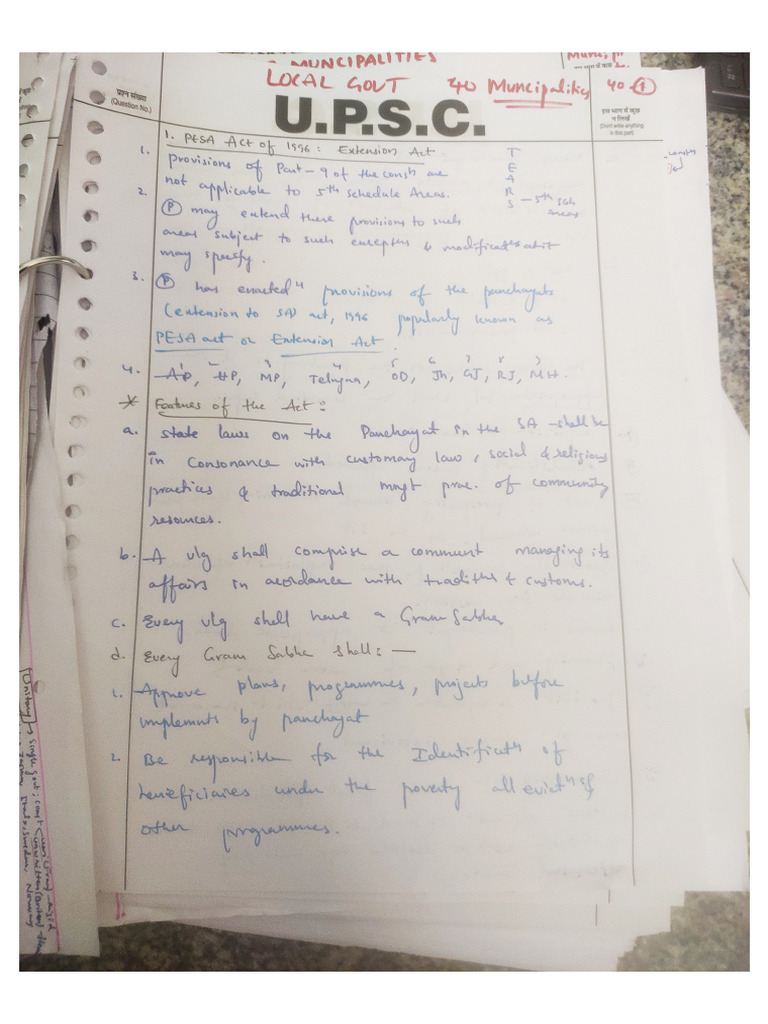 MUNCIPALITIES
LOCAL GOVT 40 Muncipalities 40-1
प्रश्न संख्या
(Question No.)
U.P.S.C.
इस भाग में कुछ
न लिखें
(Don't write anything
in this part)
1. PESA ACT OF 1996: Extension Act.
1. provisions of Part-9 of the constn are
not applicable to 5th schedule Areas.
T
E
A
R
S - 5th Sch
areas
2. (P) may extend these provisions to such
areas subject to such exceptns & modificatns as it
may specify.
3. (P) has enacted "provisions of the panchayats
(extension to SA) act, 1996 popularly known as
PESA act or Extension Act.
4. AP, HP, MP, Telngna, OD, Jh, GJ, RJ, MH.
1 2 3 4 5 6 7 8 9
* Features of the Act:
a. state laws on the Panchayat in the SA shall be
in consonance with customary law, social & religious
practices & traditional mngt prac. of community
resources.
b. A vlg shall comprise a communt managing its
affairs in acordance with tradithns & customs.
c. Every vlg shall have a Gram Sabha
d. Every Gram Sabha shall: —
1. Approve plans, programmes, projects before
implemnts by panchayat
2. Be responsible for the Identificatn of
beneficiaires under the poverty alleviatn &
other programmes.